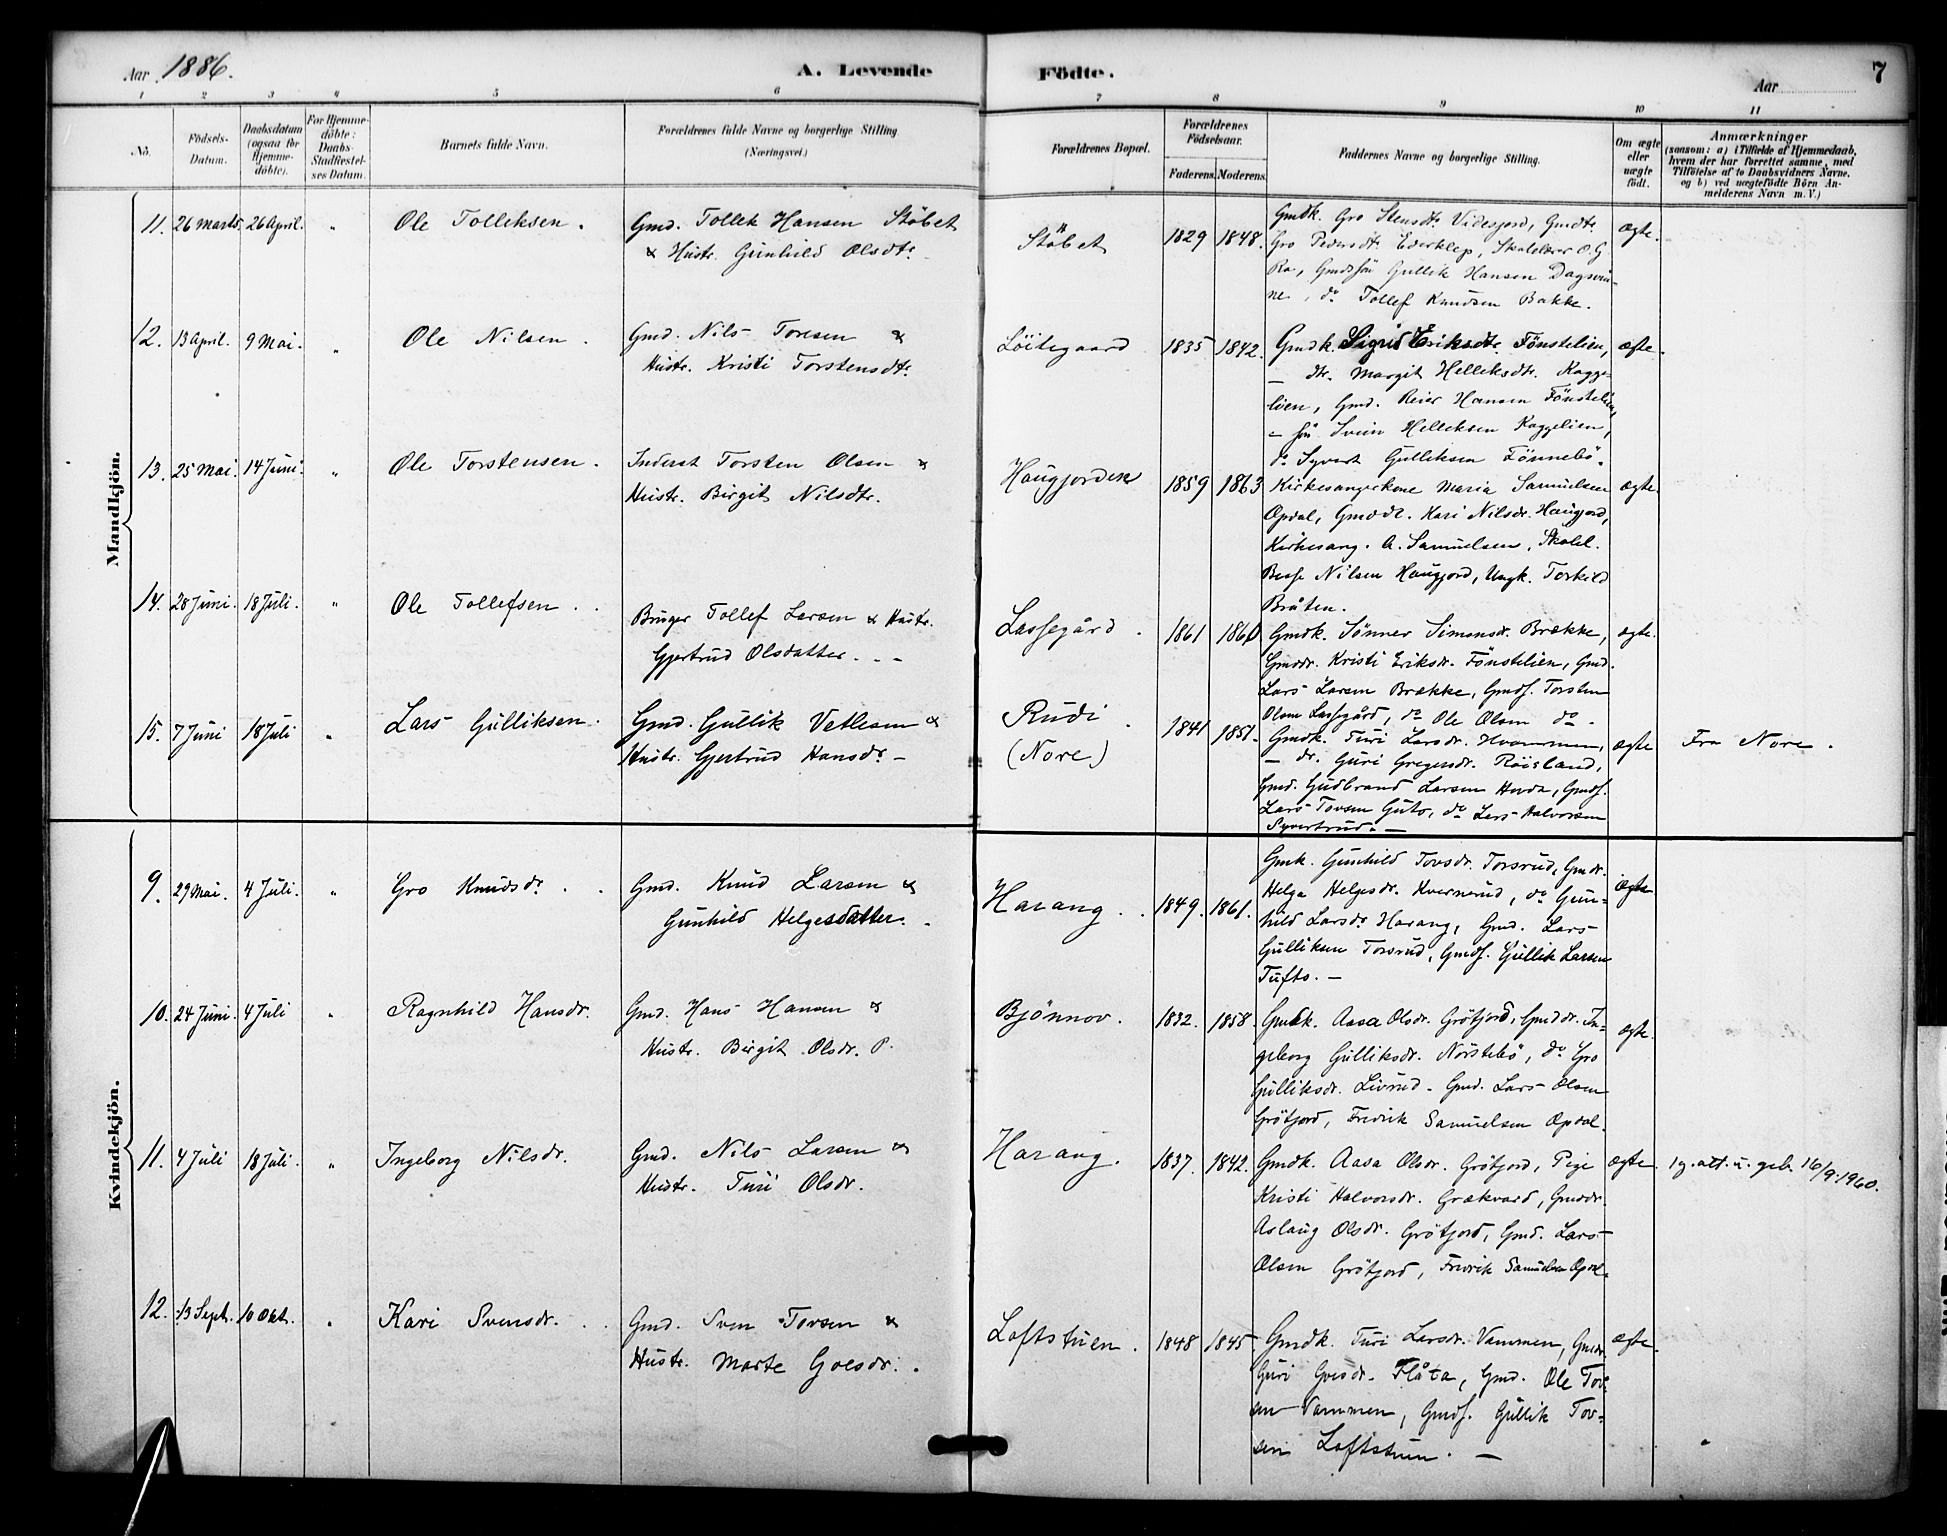 Aar 1886. A. Levende Fødte. Aar 7
1 2 3 4 5 6 7 8 9 10 11
No. Fødsels-Datum. Daabsdatum (ogsaa for Hjemmedöbte). For Hjemmedöbte: Daabs-Stadfæstelses Datum. Barnets fulde Navn. Forældrenes fulde Navne og borgerlige Stilling (Næringsvei.) Forældrenes Bopæl. Forældrenes Födselsaar. Faderens. Moderens. Faddernes Navne og borgerlige Stilling. Om ægte eller uægte födt. Anmærkninger (saasom: a) i Tilfælde af Hjemmedaab, hvem der har forrettet samme, med Tilföielse af to Daabsvidners Navne, og b) ved uægtefödte Börn Anmelderens Navn m. V.)
Mandkjön.
11. 26 Marts. 26 April. " Ole Tolleksen. Gmd. Tollek Hansen Stöbet
& Hustr. Gunhild Olsdtr.
Stöbet 1829 1848. Gmdk. Gro Stensdtr. Videsjord, Gmdtr.
Gro Pedersdtr. Ederklep, Skolelærer O. G.
Ro, Gmdssön Gullik Hansen Dagsvin-
ne, do Tollef Knudsen Bakke.
ægte.
12. 13 April. 9 Mai. " Ole Nilsen. Gmd. Nils Toresen &
Hustr. Kristi Torstensdtr.
Löitegaard 1835 1842. Gmdk. Sigrid Eriksdtr. Fönstelien,
— dtr. Margit Helleksdtr. Kagge-
lien, Gmd. Reier Hansen Fönstelien,
— sön Svein Helleksen Kaggelien,
do Syvert Gulliksen Fönnebö.
ægte.
13. 25 Mai. 14 Juni. " Ole Torstensen. Inderst Torsten Olsen &
Hustr. Birgit Nilsdtr.
Haugjorden 1859 1863 Kirkesangerkone Maria Samuelsen
Opdal, Gmddtr. Kari Nilsdr. Haugjord,
Kirkesang. A. Samuelsen, Skolel.
Nilsen Haugjord, Ungk. Torkild
Bråten.
ægte.
14. 28 Juni. 18 Juli. " Ole Tollefsen. Bruger Tollef Larsen & Hustr.
Gjertrud Olsdatter.
Lassegård. 1861 1860 Gmdk. Sönnev Simonsdr. Brække,
Gmddr. Kristi Eriksdr. Fönstelien, Gmd.
Lars Larsen Brække, Gmds. Torsten
Olsen Lassegård, do Ole Olsen do.
ægte.
15. 7 Juni 18 Juli " Lars Gulliksen. Gmd. Gullik Vetlesen &
Hustr. Gjertrud Hansdr. —
Rudi.
(Nore) 1841 1851. Gmdk. Turi Larsdr. Hvammen,
— dr. Guri Gregersdr. Röisland,
Gmd. Gudbrand Larsen Hvda, Gmds.
Lars Tovsen Guto, do Lars Halvorsen
Syvertrud. —
ægte Fra Nore.
Kvindekjön.
9. 29 Mai. 4 Juli. " Gro Knudsdr. Gmd. Knud Larsen &
Gunhild Helgesdatter.
Harang. 1849. 1861. Gmk. Gunhild Tovsdr. Torsrud, Gmdr.
Helga Helgesdr. Kvernerud, do Gun-
hild Larsdr. Harang, Gmd. Lars
Gulliksen Torsrud, Gmds. Gullik Larsen
Tufto. —
ægte
10. 24 Juni. 4 Juli " Ragnhild Hansdr. Gmd. Hans Hansen &
Hustr. Birgit Olsdr. P.
Bjönnov. 1832. 1858. Gmdk. Aasa Olsdr. Grötjord, Gmddr. In-
geborg Gulliksdr. Norstebö, do Gro
Gulliksdr. Livrud. Gmd. Lars Olsen
Grötjord, Fredrik Samuelsen Opdal.
ægte.
11. 4 Juli 18 Juli. " Ingeborg Nilsdr. Gmd. Nils Larsen &
Hustr. Turi Olsdr.
Harang. 1837. 1842. Gmdk. Aasa Olsdr. Grötjord, Pige
Kristi Halvorsdr. Grækvard, Gmddr.
Aslaug Olsdr. Grötjord, Gmd. Lars
Olsen Grötjord, Fredrik Samuelsen Opdal.
ægte. 1 g. att. u. geb. 16/9.1960.
12. 13 Sept. 10 Okt. " Kari Svensdr. Gmd. Sven Torsen &
Hustr. Marte Goesdr.
Loftstuen. 1848 1845 Gmdk. Turi Larsdr. Vammen, Gmdr.
Guri Goesdr. Flåta, Gmd. Ole Tov-
sen Vammen, Gmds. Gullik Tov-
sen Loftstuen. —
ægte.